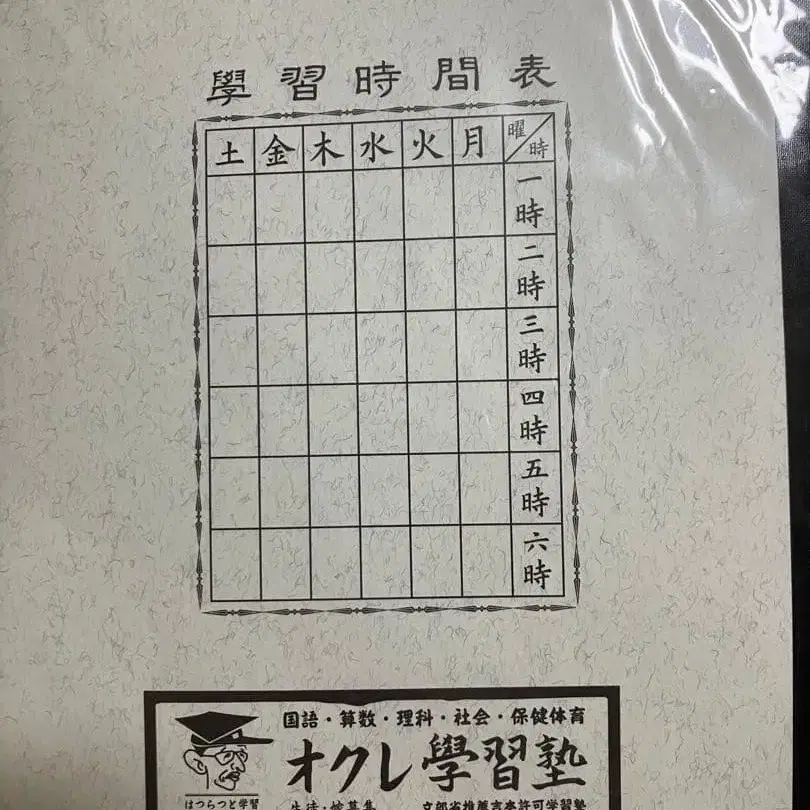 學習時間表
土 金 木 水 火 月 曜 時
一時
二時
三時
四時
五時
六時
国語・算数・理科・社会・保健体育
オクレ學習塾
はつらつと学習
生徒・嫁募集